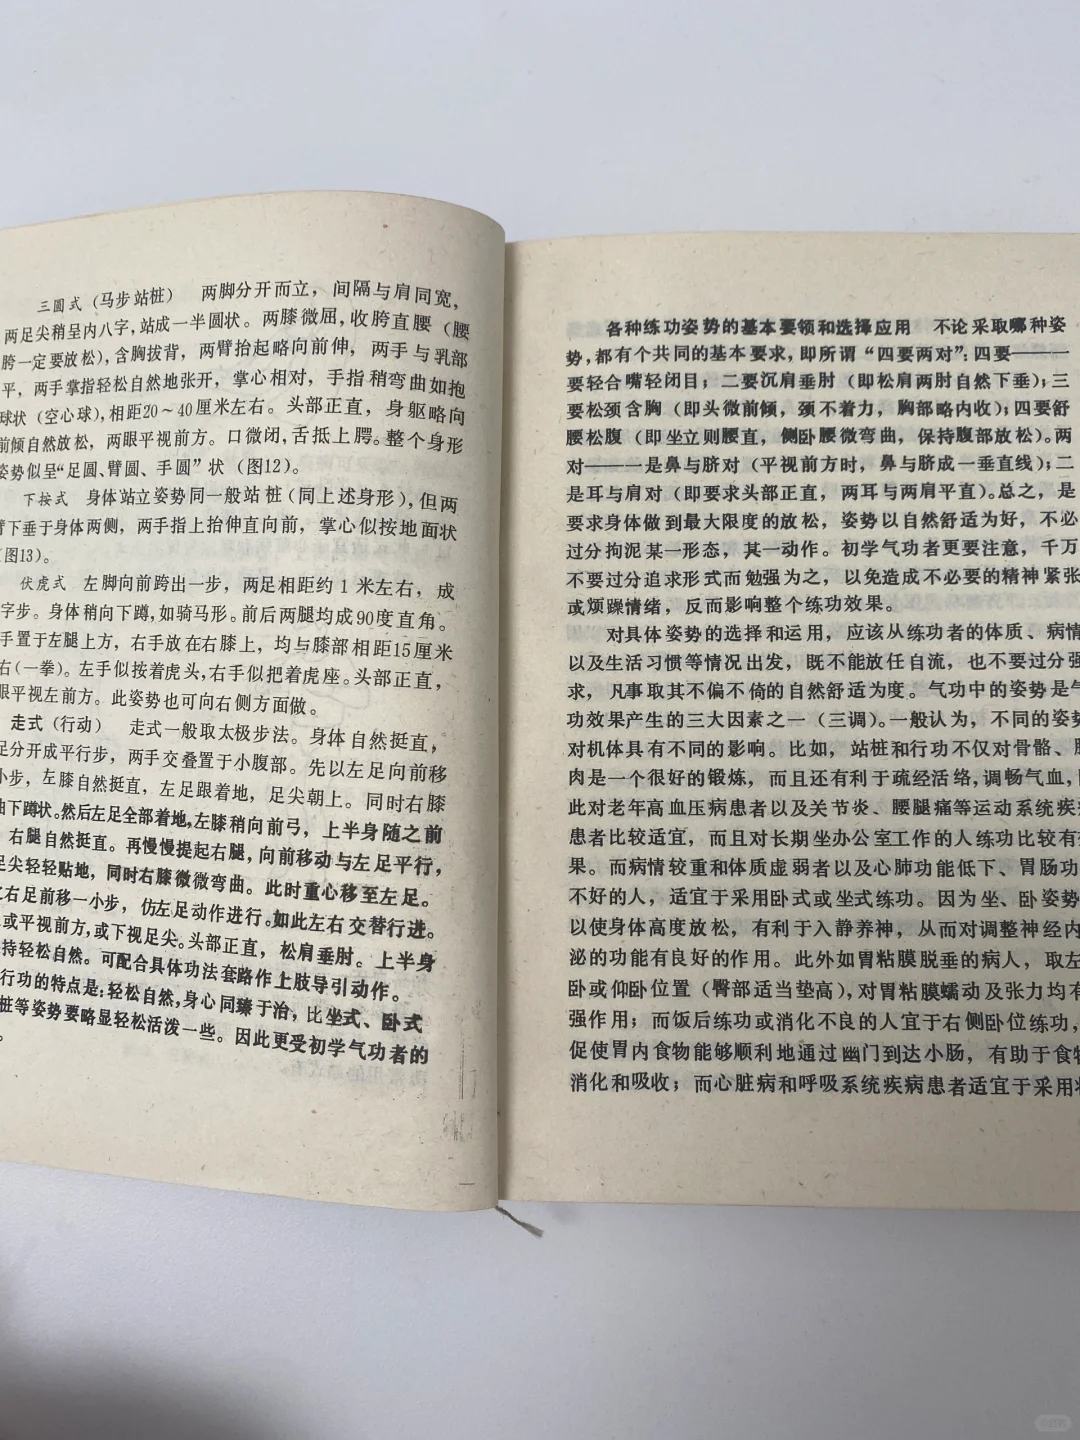 三圆式（马步站桩）　两脚分开而立，间隔与肩同宽，
两足尖稍呈内八字，站成一半圆状。两膝微屈，收胯直腰（腰
胯一定要放松），含胸拔背，两臂抬起略向前伸，两手与乳部
平，两手掌指轻松自然地张开，掌心相对，手指稍弯曲如抱
球状（空心球），相距20～40厘米左右。头部正直，身躯略向
前倾自然放松，两眼平视前方。口微闭，舌抵上腭。整个身形
姿势似呈“足圆、臂圆、手圆”状（图12）。
下按式　身体站立姿势同一般站桩（同上述身形），但两
臂下垂于身体两侧，两手指上抬伸直向前，掌心似按地面状
（图13）。
伏虎式　左脚向前跨出一步，两足相距约1米左右，成
字步。身体稍向下蹲，如骑马形。前后两腿均成90度直角。
手置于左腿上方，右手放在右膝上，均与膝部相距15厘米
右（一拳）。左手似按着虎头，右手似把着虎座。头部正直，
眼平视左前方。此姿势也可向右侧方面做。
走式（行动）　走式一般取太极步法。身体自然挺直，
足分开成平行步，两手交叠置于小腹部。先以左足向前移
小步，左膝自然挺直，左足跟着地，足尖朝上。同时右膝
曲下蹲状。然后左足全部着地，左膝稍向前弓，上半身随之前
右腿自然挺直。再慢慢提起右腿，向前移动与左足平行，
足尖轻轻贴地，同时右膝微微弯曲。此时重心移至左足。
右足前移一小步，仿左足动作进行。如此左右交替行进。
或平视前方，或下视足尖。头部正直，松肩垂肘。上半身
持轻松自然。可配合具体功法套路作上肢导引动作。
行功的特点是：轻松自然，身心同臻于治，比坐式、卧式
桩等姿势要略显轻松活泼一些。因此更受初学气功者的
。
各种练功姿势的基本要领和选择应用　不论采取哪种姿
势，都有个共同的基本要求，即所谓“四要两对”：四要———一
要轻合嘴轻闭目；二要沉肩垂肘（即松肩两肘自然下垂）；三
要松颈含胸（即头微前倾，颈不着力，胸部略内收）；四要舒
腰松腹（即坐立则腰直，侧卧腰微弯曲，保持腹部放松）。两
对———一是鼻与脐对（平视前方时，鼻与脐成一垂直线）；二
是耳与肩对（即要求头部正直，两耳与两肩平直）。总之，是
要求身体做到最大限度的放松，姿势以自然舒适为好，不必
过分拘泥某一形态，其一动作。初学气功者更要注意，千万
不要过分追求形式而勉强为之，以免造成不必要的精神紧张
或烦躁情绪，反而影响整个练功效果。
对具体姿势的选择和运用，应该从练功者的体质、病情
以及生活习惯等情况出发，既不能放任自流，也不要过分强
求，凡事取其不偏不倚的自然舒适为度。气功中的姿势是气
功效果产生的三大因素之一（三调）。一般认为，不同的姿势
对机体具有不同的影响。比如，站桩和行功不仅对骨骼、肌
肉是一个很好的锻炼，而且还有利于疏经活络，调畅气血，因
此对老年高血压病患者以及关节炎、腰腿痛等运动系统疾病
患者比较适宜，而且对长期坐办公室工作的人练功比较有效
果。而病情较重和体质虚弱者以及心肺功能低下、胃肠功
不好的人，适宜于采用卧式或坐式练功。因为坐、卧姿势
以使身体高度放松，有利于入静养神，从而对调整神经内
泌的功能有良好的作用。此外如胃粘膜脱垂的病人，取左
卧或仰卧位置（臀部适当垫高），对胃粘膜蠕动及张力均有
强作用；而饭后练功或消化不良的人宜于右侧卧位练功，
促使胃内食物能够顺利地通过幽门到达小肠，有助于食物
消化和吸收；而心脏病和呼吸系统疾病患者适宜于采用